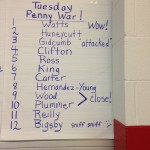 Tuesday
Penny War!
1 Watts Wow!
2 Huneycutt
3 Gidcumb attached
4 Clifton
5 Ross
6 King
7 Carter
8 Hernandez-Young
9 Wood
10 Plummer > close!
11 Reilly
12 Bigsby sniff sniff